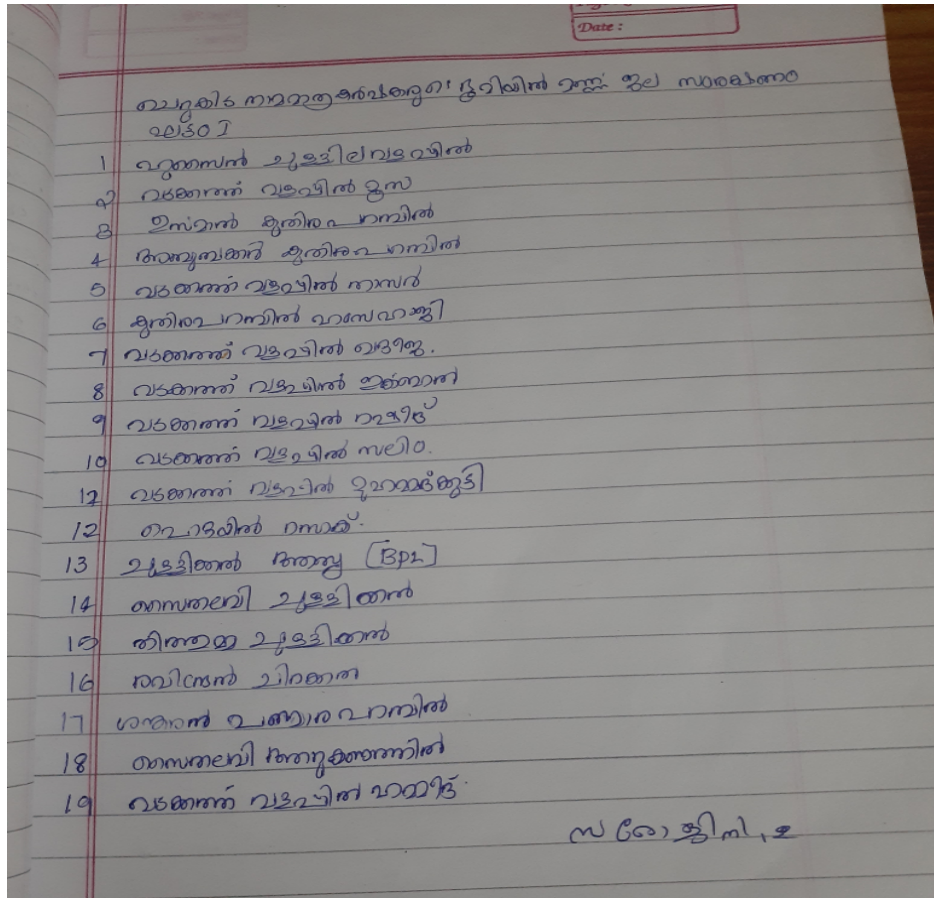 Date :
ചെറുകിട നാമമാത്ര കർഷകരുടെ ഭൂമിയിൽ മണ്ണ് ജല സംരക്ഷണം
ഘട്ടം I
1 ഹുസൈൻ ചുള്ളിലവളപ്പിൽ
2 വടക്കത്ത് വളപ്പിൽ മൂസ
3 ഉസ്മാൻ കുതിരപറമ്പിൽ
4 അബൂബക്കർ കുതിരപറമ്പിൽ
5 വടക്കത്ത് വളപ്പിൽ നാസർ
6 കുതിരപറമ്പിൽ ഹംസഹാജി
7 വടക്കത്ത് വളപ്പിൽ ഖദീജ.
8 വടക്കത്ത് വളപ്പിൽ ഇക്ബാൽ
9 വടക്കത്ത് വളപ്പിൽ റഷീദ്
10 വടക്കത്ത് വളപ്പിൽ സലിം.
12 വടക്കത്ത് വളപ്പിൽ മുഹമ്മദ്കുട്ടി
12 റസാക്ക്.
13 ചുള്ളിക്കൽ [BPL]
14 സൈതലവി ചുള്ളിക്കൽ
15 തിത്തുമ്മ ചുള്ളിക്കൽ
16 രവീന്ദ്രൻ ചിറക്കൽ
17 ശങ്കരൻ പണ്ടാരപറമ്പിൽ
18 സൈതലവി
19 വടക്കത്ത് വളപ്പിൽ ഹമീദ്.
സരോജിനി.